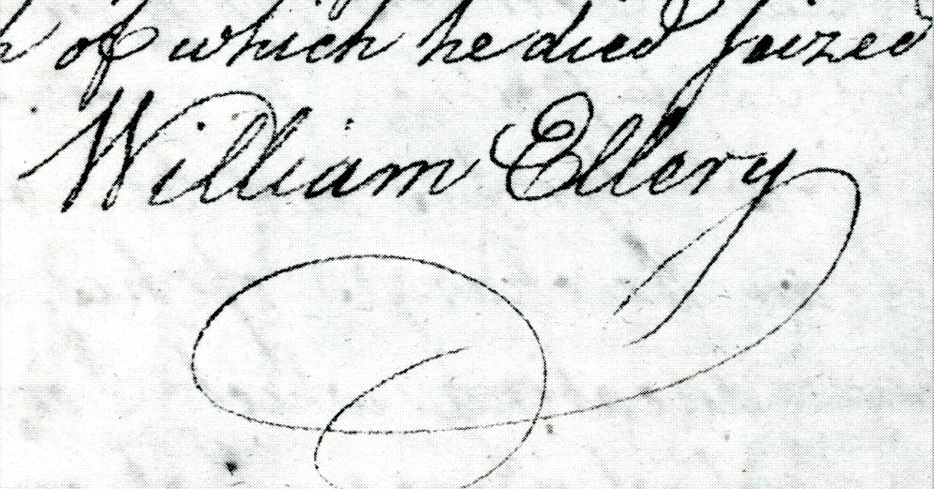 of which he died seized
William Ellery